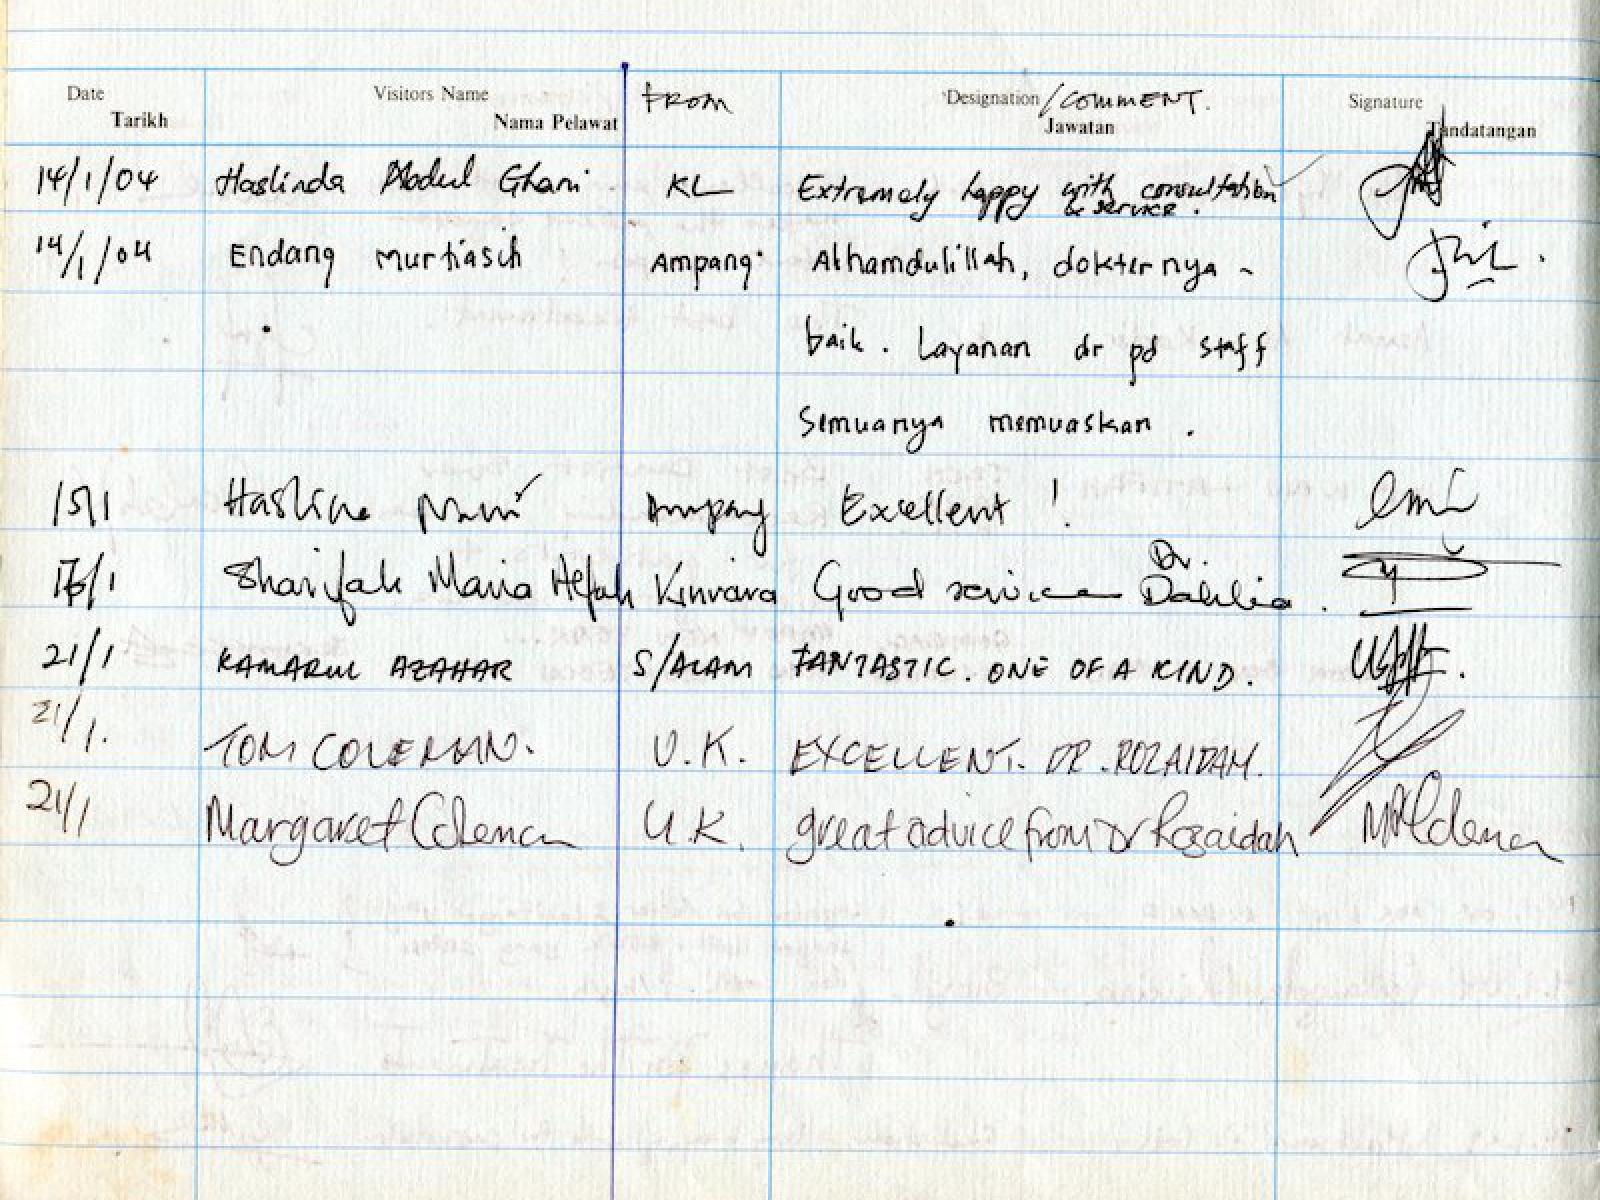 Date Visitors Name FROM Designation/COMMENT. Signature
Tarikh Nama Pelawat Jawatan Tandatangan
14/1/04 Haslinda Abdul Ghani KL Extremely happy with consultation
& service.
14/1/04 Endang murtiasih Ampang Alhamdulillah, dokternya -
baik. Layanan dr pd staff
semuanya memuaskan.
15/1 Ampang Excellent!
Dr.
Sharifah Maria Kinrara Good service Dahlia.
21/1 KAMARUL AZAHAR S/ALAM FANTASTIC. ONE OF A KIND.
21/1. TOM COLEMAN. U.K. EXCELLENT. DR. ROZAIDAH.
21/1 Margaret Coleman U.K. great advice from Dr Rozaidah